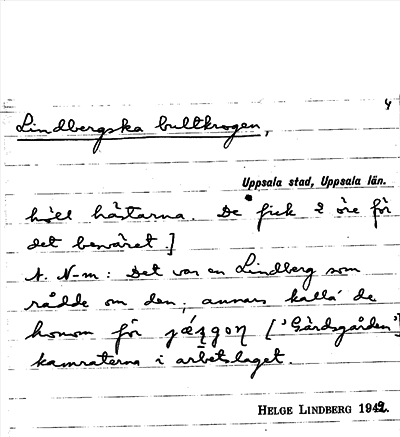 4
Lindbergska bultkrogen,
Uppsala stad, Uppsala län.
höll hästarna. De fick 2 öre för
det besväret.]
A. N-m: Det var en Lindberg som
rådde om den; annars kalla' de
honom för ['Gårdsgården']
kamraterna i arbetslaget.
HELGE LINDBERG 1942.